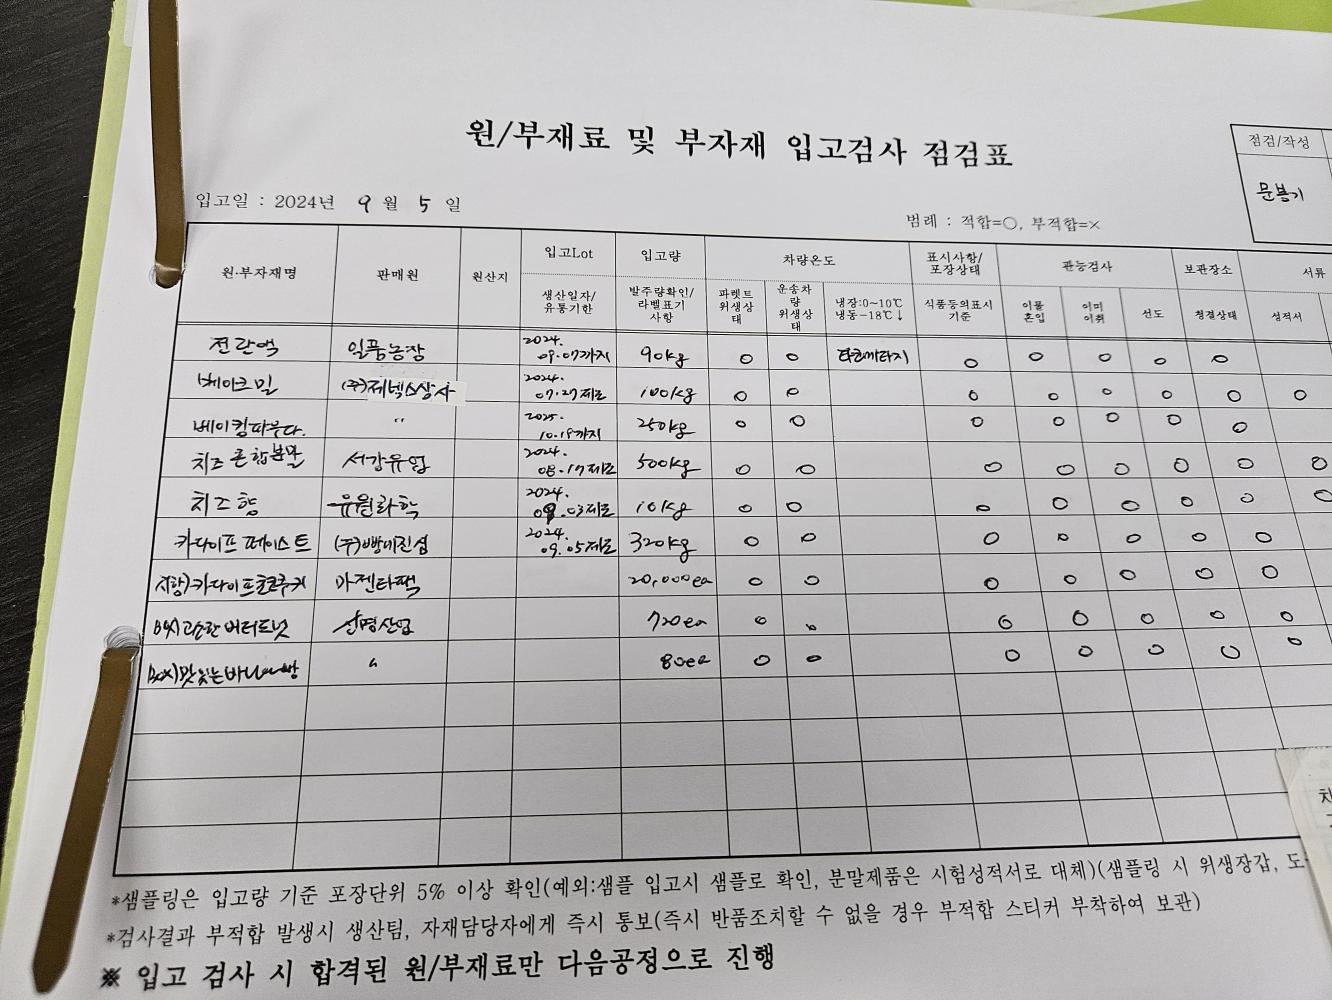 원/부재료 및 부자재 입고검사 점검표
점검/작성
문봉기
입고일 : 2024년 9 월 5 일
범례 : 적합=○, 부적합=×
원·부자재명 판매원 원산지 입고Lot 입고량 차량온도 표시사항/포장상태 관능검사 보관장소 서류
생산일자/유통기한 발주량확인/라벨표기사항 파렛트위생상태 운송차량위생상태 냉장:0~10℃ 냉동-18℃↓ 식품등의표시기준 이물혼입 이미이취 선도 청결상태 성적서
전란액 일품농장 2024. 09.07까지 90kg ○ ○ ○ ○ ○ ○ ○
베이크밀 (주)제넥스상사 2024. 07.27제조 100kg ○ ○ ○ ○ ○ ○ ○ ○
베이킹파우다. " 2025. 10.18까지 250kg ○ ○ ○ ○ ○ ○ ○
치즈혼합분말 서강유업 2024. 08.17제조 500kg ○ ○ ○ ○ ○ ○ ○ ○
치즈향 유원화학 2024. 09.03제조 10kg ○ ○ ○ ○ ○ ○ ○ ○
카다이프 페이스트 (주)빵네진섬 2024. 09.05제조 320kg ○ ○ ○ ○ ○ ○ ○
카다이프 마젠타팩 20,000ea ○ ○ ○ ○ ○ ○ ○
BOX)고소한 버터도넛 삼명산업 720ea ○ ○ ○ ○ ○ ○ ○
BOX)맛있는바나나빵 " 80ea ○ ○ ○ ○ ○ ○ ○
*샘플링은 입고량 기준 포장단위 5% 이상 확인(예외:샘플 입고시 샘플로 확인, 분말제품은 시험성적서로 대체)(샘플링 시 위생장갑, 도
*검사결과 부적합 발생시 생산팀, 자재담당자에게 즉시 통보(즉시 반품조치할 수 없을 경우 부적합 스티커 부착하여 보관)
※ 입고 검사 시 합격된 원/부재료만 다음공정으로 진행